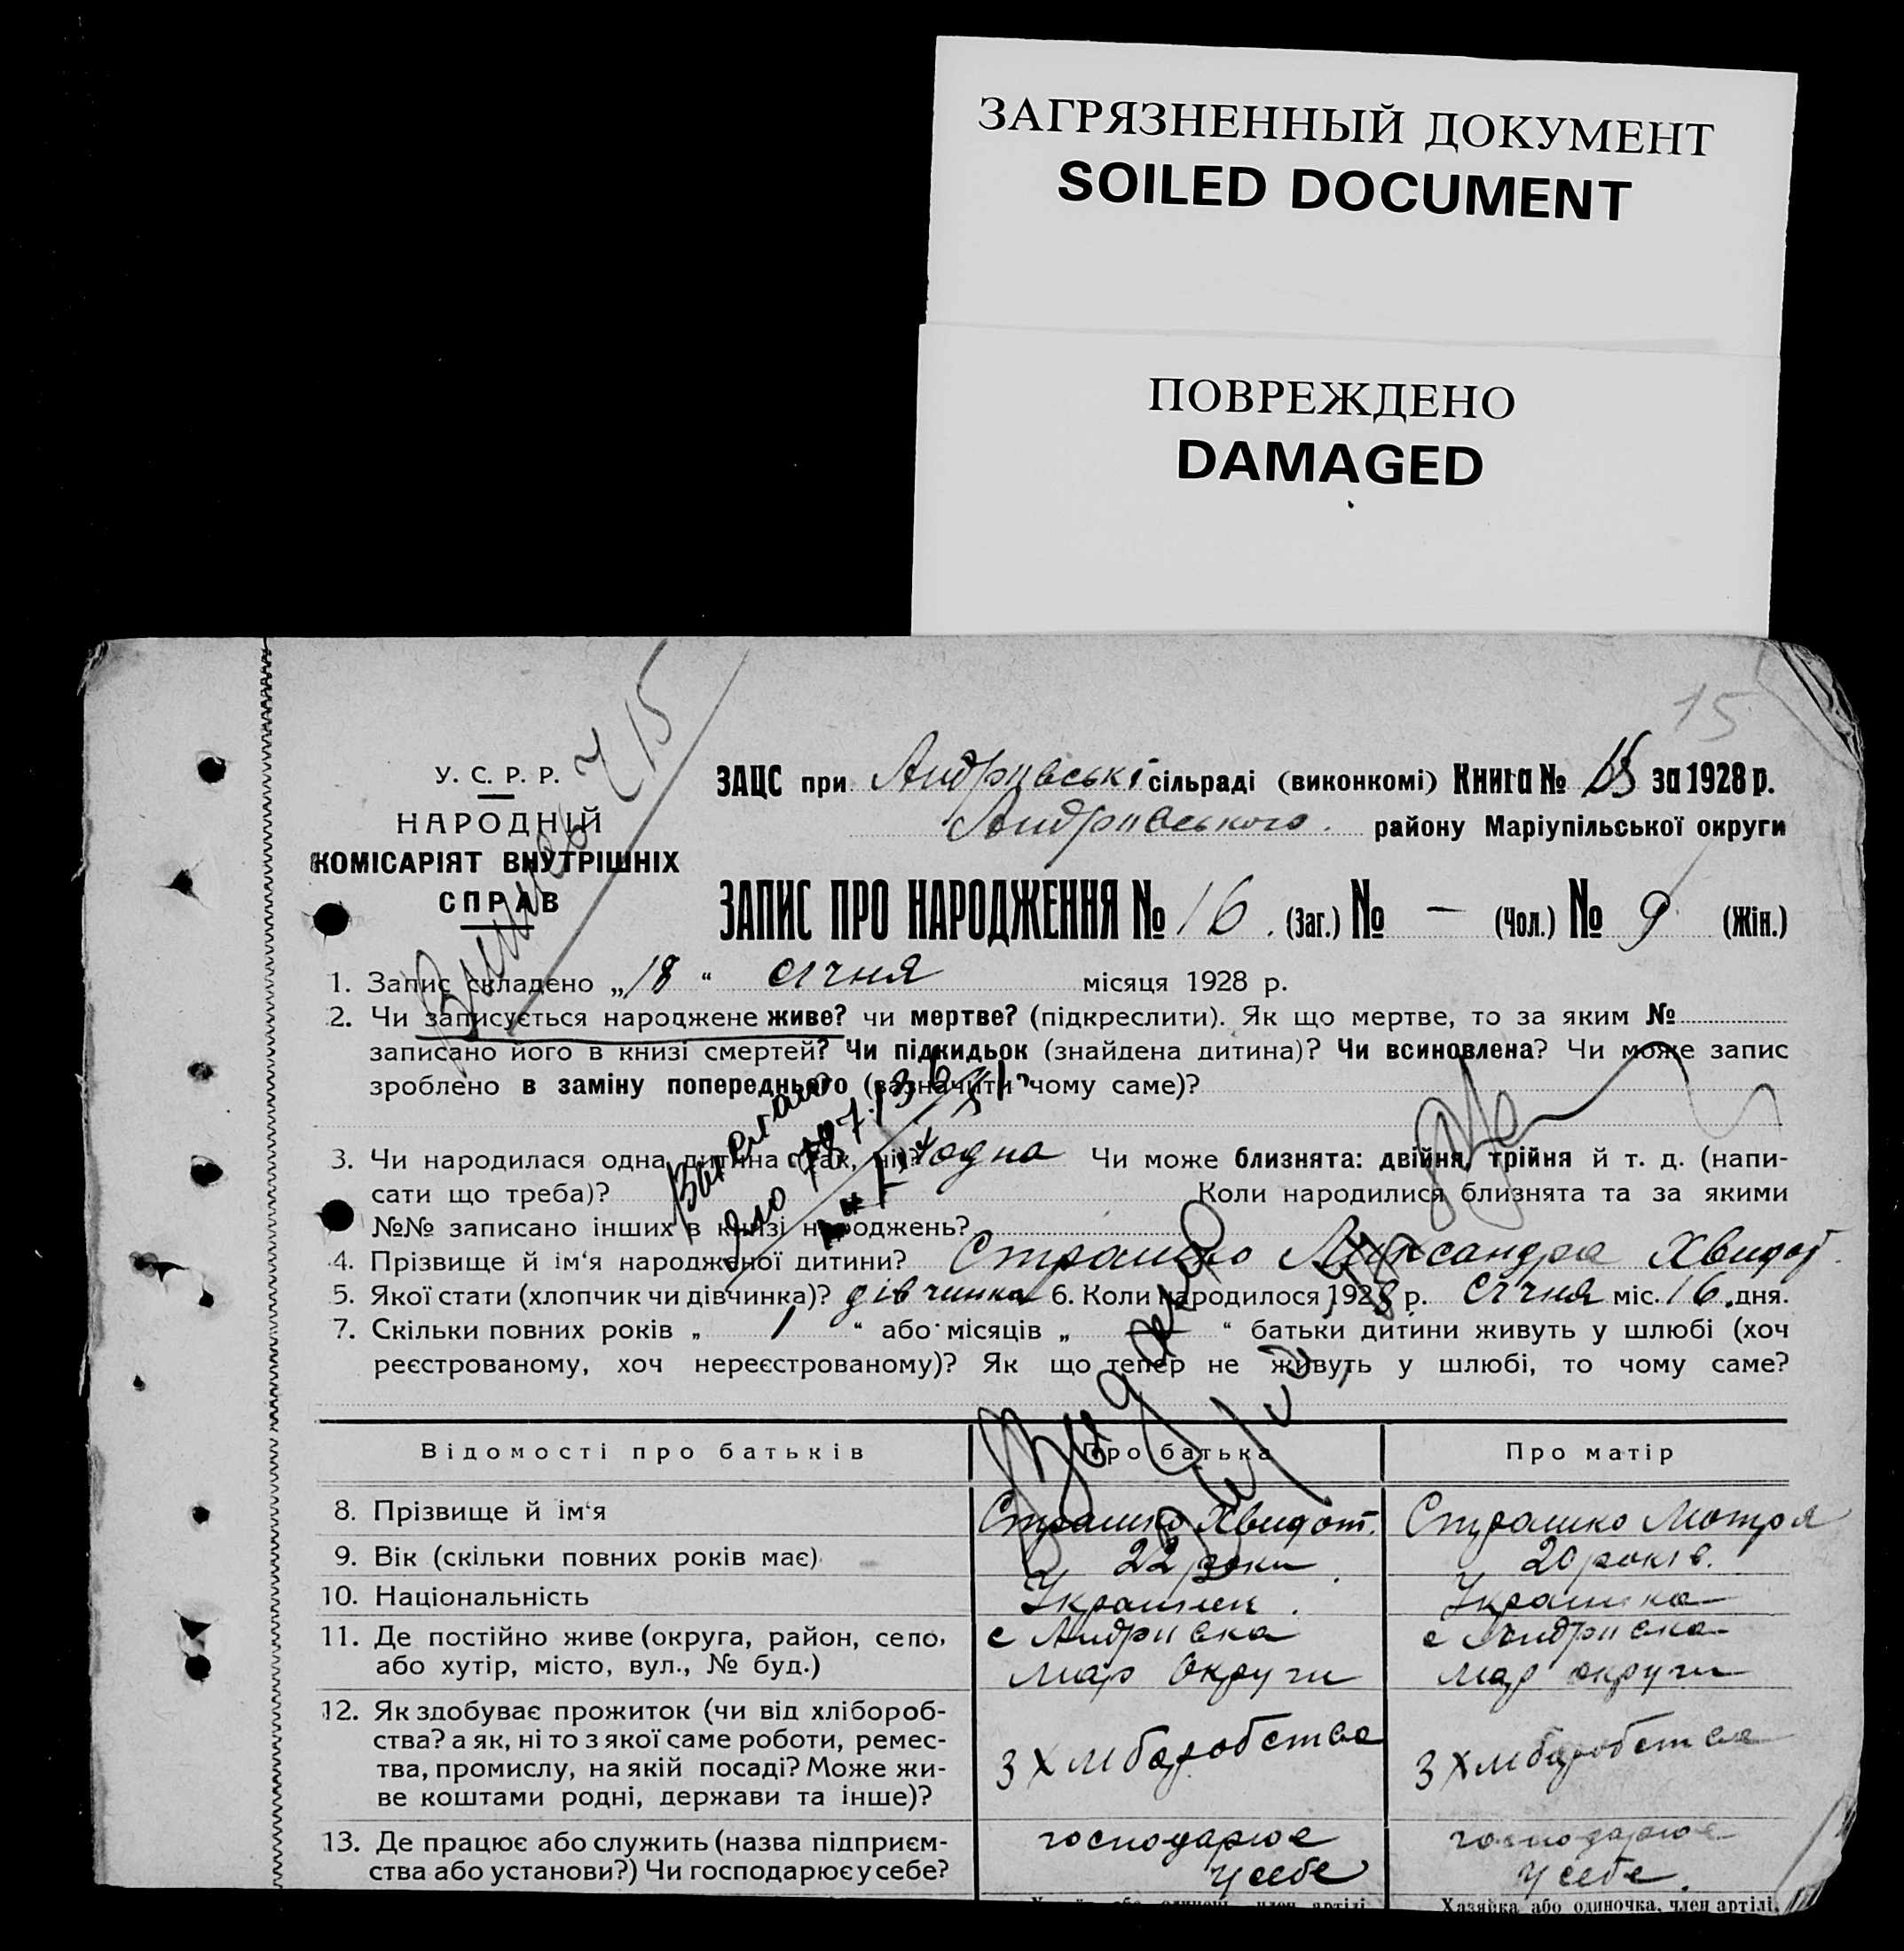 ЗАГРЯЗНЕННЫЙ ДОКУМЕНТ
SOILED DOCUMENT
ПОВРЕЖДЕНО
DAMAGED
15
У. С. Р. Р.
НАРОДНІЙ
КОМІСАРІЯТ ВНУТРІШНІХ
СПРАВ
ЗАЦС при Андріівські сільраді (виконкомі) Книга № за 1928 р.
Андріівського району Маріупільської округи
ЗАПИС ПРО НАРОДЖЕННЯ № 16 (Заг.) № — (Чол.) № 9 (Жін.)
1. Запис складено „18“ січня місяця 1928 р.
2. Чи записується народжене живе? чи мертве? (підкреслити). Як що мертве, то за яким №
записано його в книзі смертей? Чи підкидьок (знайдена дитина)? Чи всиновлена? Чи може запис
зроблено в заміну попереднього (зазначити чому саме)?
3. Чи народилася одна дитина (так, ні)? одна Чи може близнята: двійня, трійня й т. д. (напи-
сати що треба)? Коли народилися близнята та за якими
№№ записано інших в книзі народжень?
4. Прізвище й ім‘я народженої дитини? Страшко Ликсандра Хвидот.
5. Якої стати (хлопчик чи дівчинка)? дівчинка 6. Коли народилося 1928 р. січня міс. 16 дня.
7. Скільки повних років „ 1 “ або місяців „ “ батьки дитини живуть у шлюбі (хоч
реєстрованому, хоч нереєстрованому)? Як що тепер не живуть у шлюбі, то чому саме?
Відомості про батьків Про батька Про матір
8. Прізвище й ім‘я Страшко Хвидот. Страшко Мотря
9. Вік (скільки повних років має) 22 роки 20 років.
10. Національність Украінец. Украінка
11. Де постійно живе (округа, район, село, с Андріівка с Андріівка
або хутір, місто, вул., № буд.) Мар округи Мар округи
12. Як здобуває прожиток (чи від хлібороб-
ства? а як, ні то з якої саме роботи, ремес-
тва, промислу, на якій посаді? Може жи-
ве коштами родні, держави та інше)?
З хліборобства З хліборобства
13. Де працює або служить (назва підприєм- господарює господарює
ства або установи?) Чи господарює у себе? у себе у себе.
Хазяйка або одиночка, член артілі,